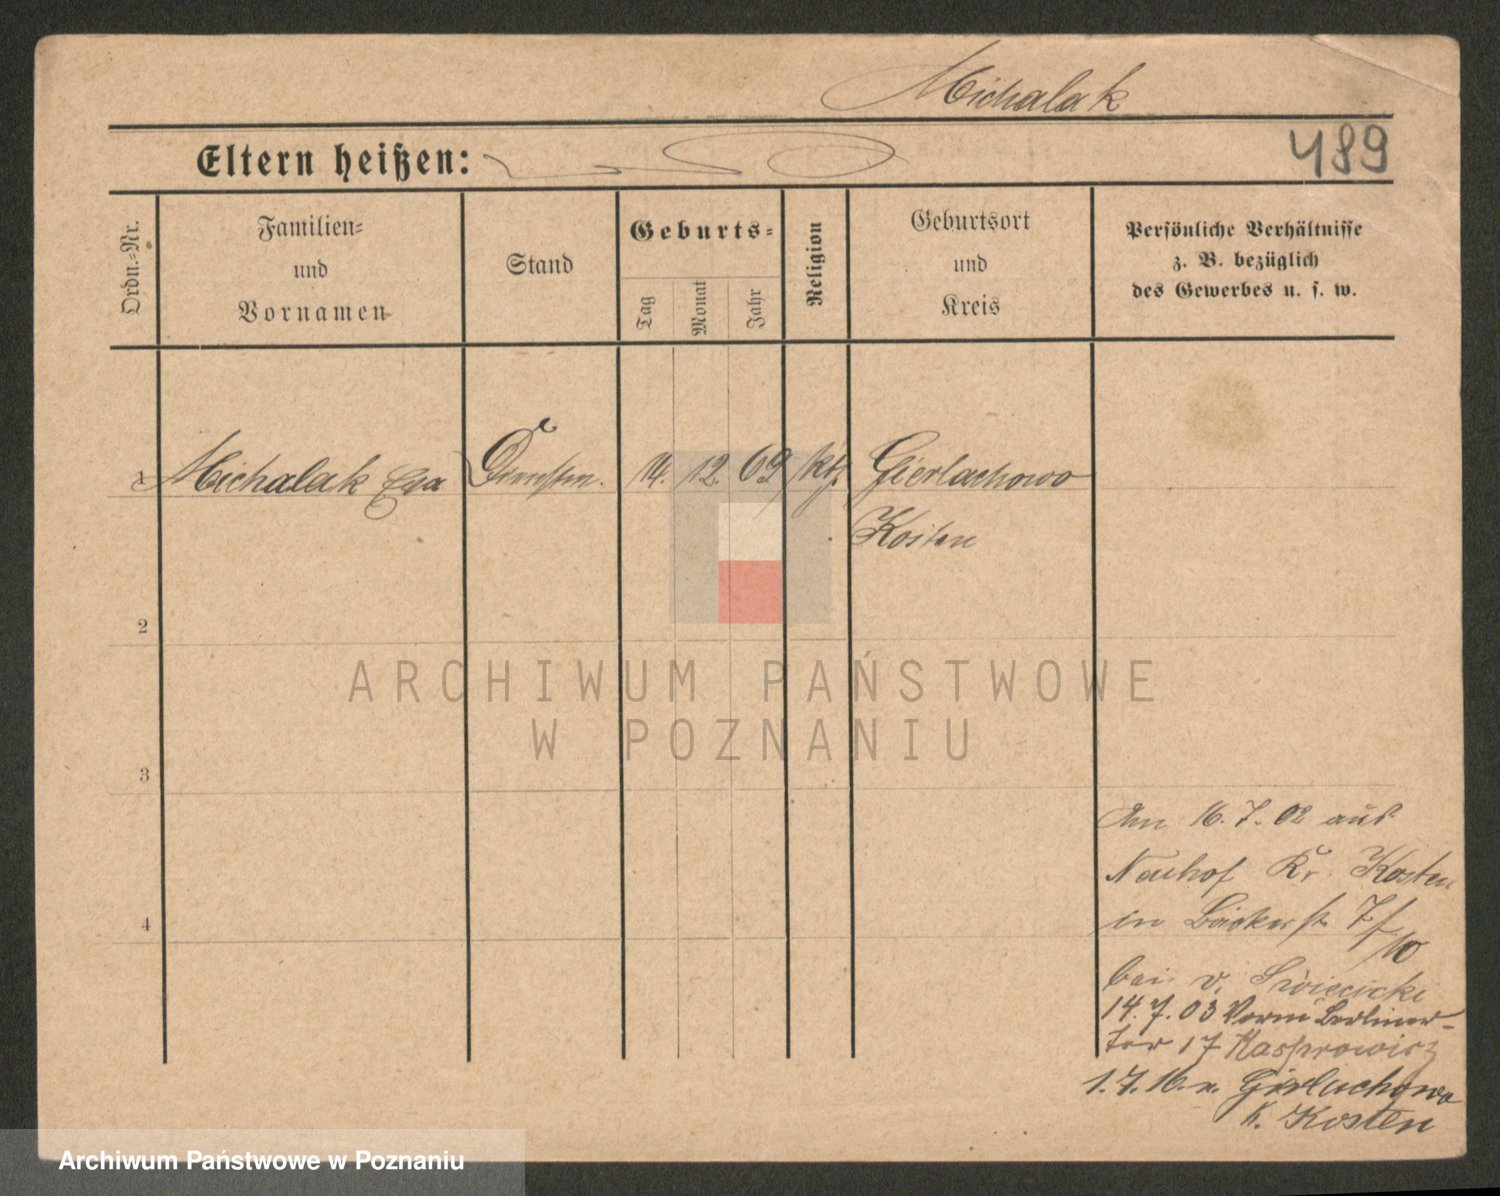 Michalak
Eltern heißen:
489
Ordn.-Nr.
Familien-
und
Vornamen
Stand
Geburts-
Tag
Monat
Jahr
Religion
Geburtsort
und
Kreis
Persönliche Verhältnisse
z. B. bezüglich
des Gewerbes u. s. w.
1 Michalak Eva 14. 12. 69 kth. Gierlachowo
Kosten
2
ARCHIWUM PAŃSTWOWE
W POZNANIU
3
Am 16. 7. 02 aus
Neuhof Kr. Kosten
4
in Bäckerstr. 7/10
bei v. Swiecicki
14. 7. 03 Vorm Berliner-
tor 17 Kasprowicz
1. 7. 16. n. Gierlachowo
K. Kosten
Archiwum Państwowe w Poznaniu